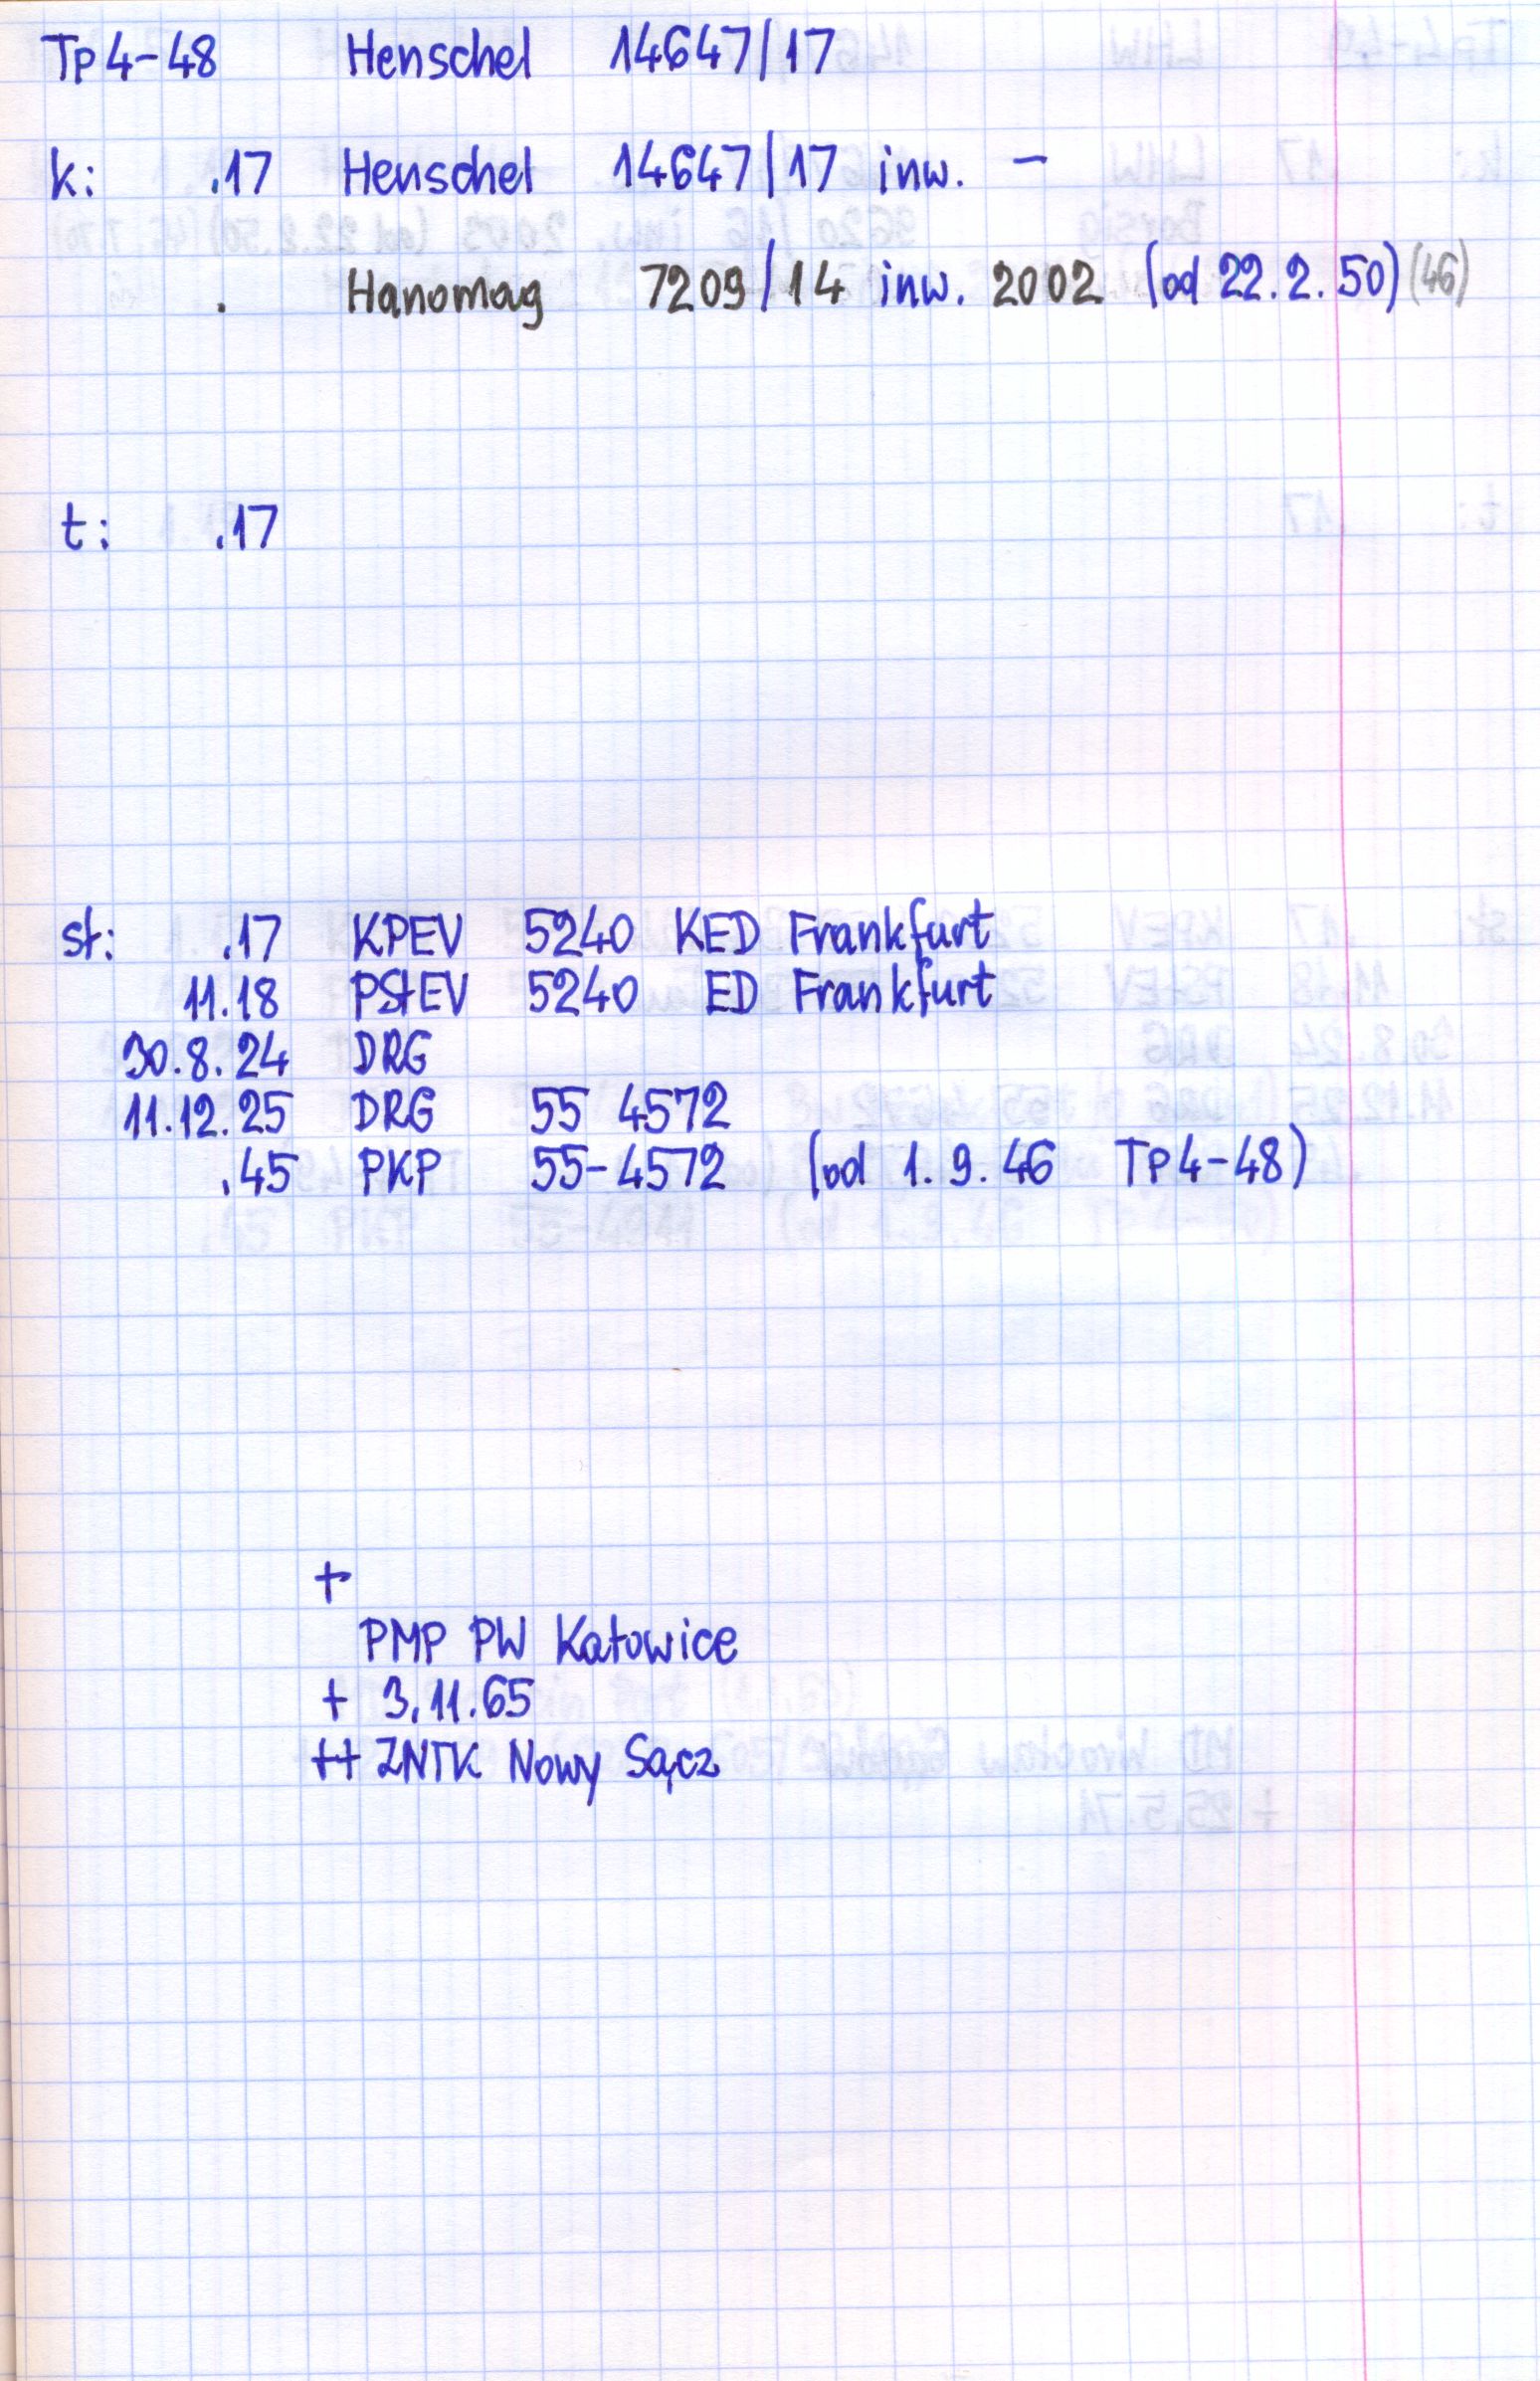 Tp4-48 Henschel 14647/17
k: .17 Henschel 14647/17 inw. -
. Hanomag 7209/14 inw. 2002 (od 22.2.50) (46)
t: .17
st: .17 KPEV 5240 KED Frankfurt
11.18 PStEV 5240 ED Frankfurt
30.8.24 DRG
11.12.25 DRG 55 4572
.45 PKP 55-4572 (od 1.9.46 Tp4-48)
+
PMP PW Katowice
+ 3.11.65
++ ZNTK Nowy Sącz